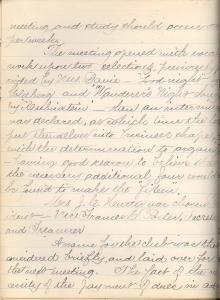 meeting, and study should occur
per week.
The meeting opened with voca
work upon two selections, previously
by Mrs. Davie - "Good night
" and "Wanderer's Night Song
by Rubinstein" - then an intermis
was declared, at which time the
put themselves into business shape
with the determination to organize
- having good reason to believe that
the necessary additional four would
be found to make the "fifteen".
Mrs. J. C. was chosen
ident - Miss Frances G. Porter, Secreta
and Treasurer
A name for the club was then
considered briefly, and laid over for
the next meeting. The fact of the
cessity of the payment of dues in ad